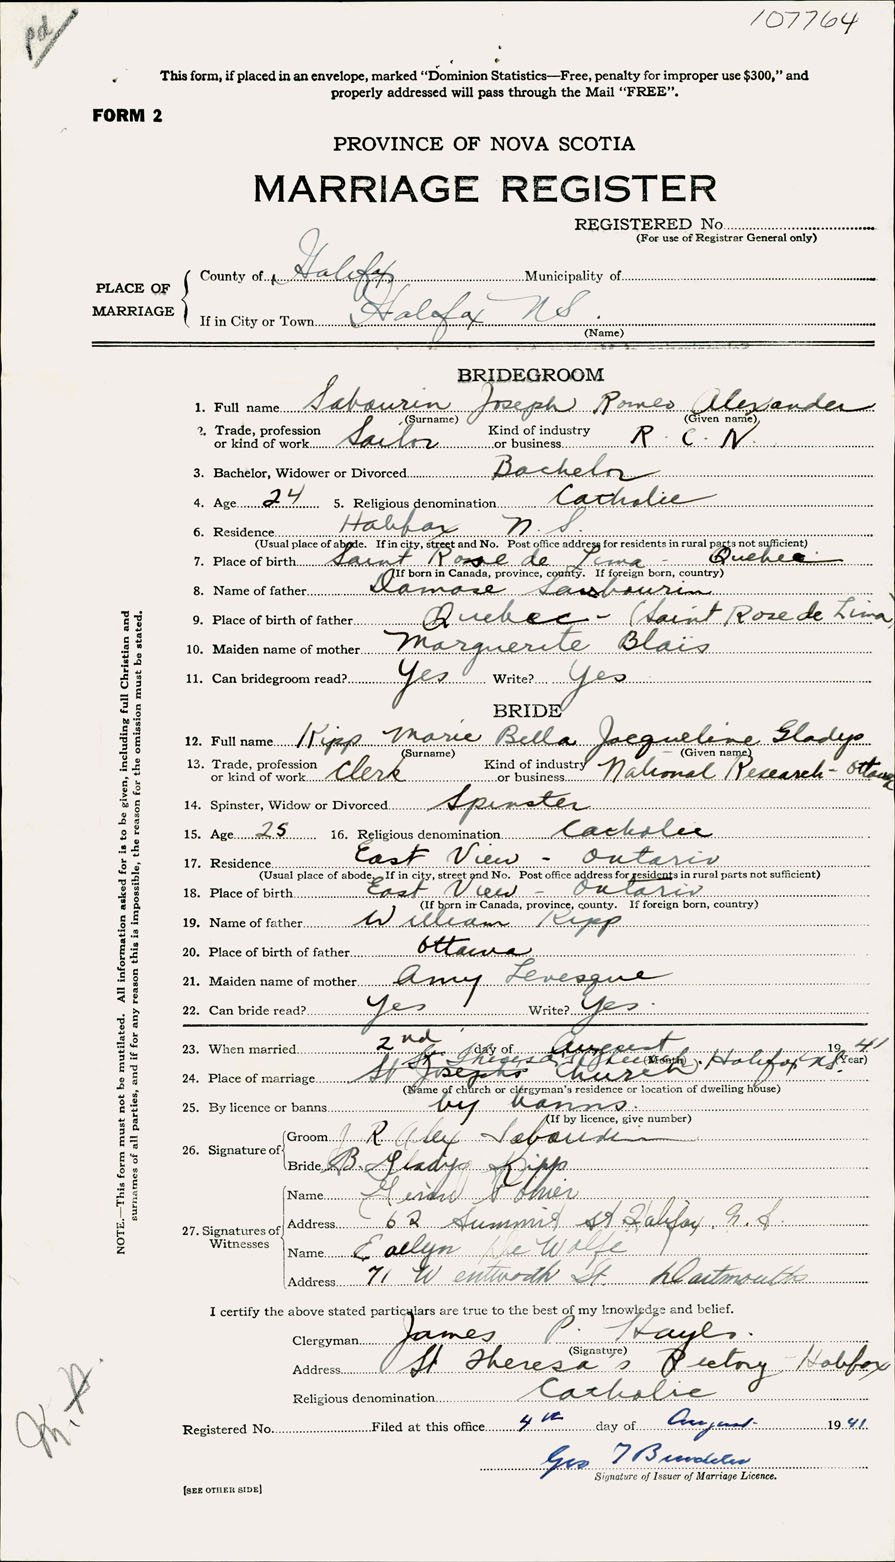 pd
107764
This form, if placed in an envelope, marked "Dominion Statistics—Free, penalty for improper use $300," and
properly addressed will pass through the Mail "FREE".
FORM 2
PROVINCE OF NOVA SCOTIA
MARRIAGE REGISTER
REGISTERED No.
(For use of Registrar General only)
PLACE OF MARRIAGE
County of Halifax Municipality of
If in City or Town Halifax NS.
(Name)
BRIDEGROOM
1. Full name Sabourin Joseph Romeo Alexander
(Surname) (Given name)
2. Trade, profession or kind of work Sailor Kind of industry or business R. C. N.
3. Bachelor, Widower or Divorced Bachelor
4. Age 24 5. Religious denomination Catholic
6. Residence Halifax N.S.
(Usual place of abode. If in city, street and No. Post office address for residents in rural parts not sufficient)
7. Place of birth Saint Rose de Lima - Quebec
(If born in Canada, province, county. If foreign born, country)
8. Name of father Damase Sabourin
9. Place of birth of father Quebec - (Saint Rose de Lima)
10. Maiden name of mother Marguerite Blais
11. Can bridegroom read? Yes Write? Yes
BRIDE
12. Full name Kipp Marie Bella Jacqueline Gladys
(Surname) (Given name)
13. Trade, profession or kind of work Clerk Kind of industry or business National Research - Ottawa
14. Spinster, Widow or Divorced Spinster
15. Age 25 16. Religious denomination Catholic
17. Residence East View - Ontario
(Usual place of abode. If in city, street and No. Post office address for residents in rural parts not sufficient)
18. Place of birth East View - Ontario
(If born in Canada, province, county. If foreign born, country)
19. Name of father William Kipp
20. Place of birth of father Ottawa
21. Maiden name of mother Amy Levesque
22. Can bride read? Yes Write? Yes.
23. When married 2nd day of August 1941
(Month) (Year)
St. Theresa's Church. Halifax N.S.
24. Place of marriage St Josephs Church
(Name of church or clergyman's residence or location of dwelling house)
25. By licence or banns by banns.
(If by licence, give number)
26. Signature of
Groom J R Alex Sabourin
Bride B. Gladys Kipp
27. Signatures of Witnesses
Name
Address 62 Summit St Halifax, N.S.
Name Evelyn De Wolfe
Address 71 Wentworth St. Dartmouth
I certify the above stated particulars are true to the best of my knowledge and belief.
Clergyman James P. Hayes.
(Signature)
Address St Theresa's Rectory Halifax
Religious denomination Catholic
Registered No. Filed at this office 4th day of August 1941.
Geo
Signature of Issuer of Marriage Licence.
[SEE OTHER SIDE]
NOTE.—This form must not be mutilated. All information asked for is to be given, including full Christian and
surnames of all parties, and if for any reason this is impossible, the reason for the omission must be stated.